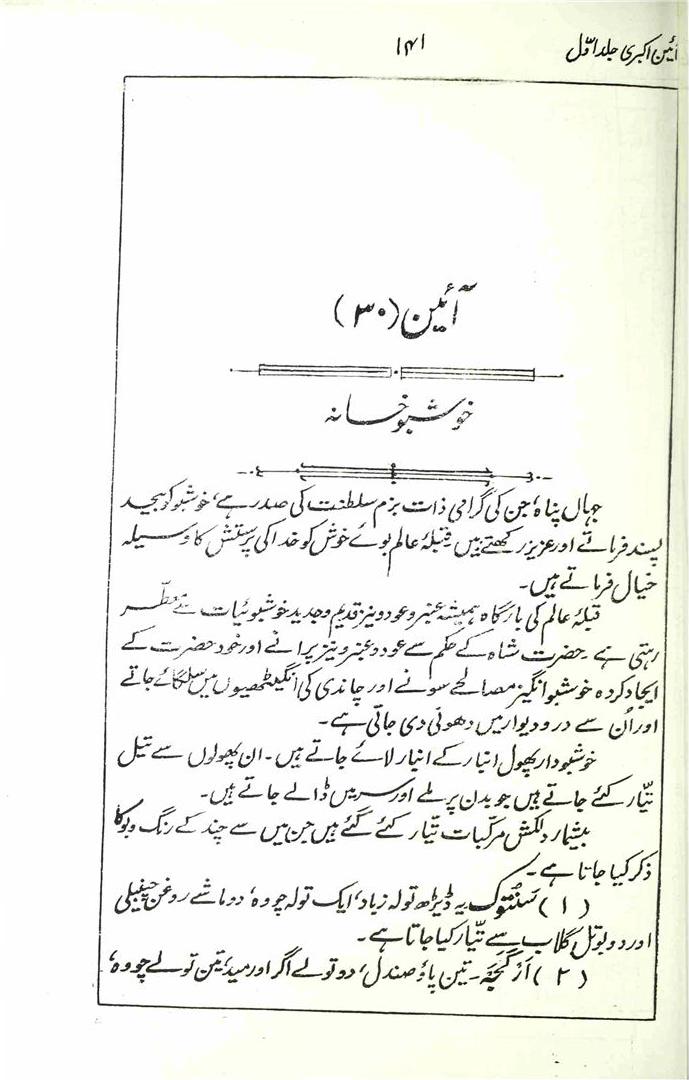 آئین اکبری جلد اوّل
۱۴۱
آئین (۳۰)
خوشبو خانہ
جہاں پناہ، جن کی گرامی ذات بزم سلطنت کی صدر ہے، خوشبو کو بیحد
پسند فرماتے اور عزیز رکھتے ہیں۔ قبلۂ عالم بوئے خوش کو خدا کی پرستش کا وسیلہ
خیال فرماتے ہیں۔
قبلۂ عالم کی بارگاہ ہمیشہ عنبر و عود و نیز قدیم و جدید خوشبوئیات سے معطّر
رہتی ہے۔ حضرت شاہ کے حکم سے عود و عنبر و نیز پرانے اور خود حضرت کے
ایجاد کردہ خوشبو انگیز مصالحے سونے اور چاندی کی انگیٹھیوں میں سلگائے جاتے
اور اُن سے در و دیوار میں دھونی دی جاتی ہے۔
خوشبودار پھول انبار کے انبار لائے جاتے ہیں۔ ان پھولوں سے تیل
تیّار کئے جاتے ہیں جو بدن پر ملے اور سر میں ڈالے جاتے ہیں۔
بیشمار دلکش مرکّبات تیّار کئے گئے ہیں جن میں سے چند کے رنگ و بو کا
ذکر کیا جاتا ہے۔
(۱) سَنْتُوک یہ ڈیڑھ تولہ زباد، ایک تولہ چووہ، دو ماشے روغن چنبیلی
اور دو بوتل گلاب سے تیّار کیا جاتا ہے۔
(۲) اَرگَجَہ۔ تین پاؤ صندل، دو تولے اگر اور مید، تین تولے چووہ،